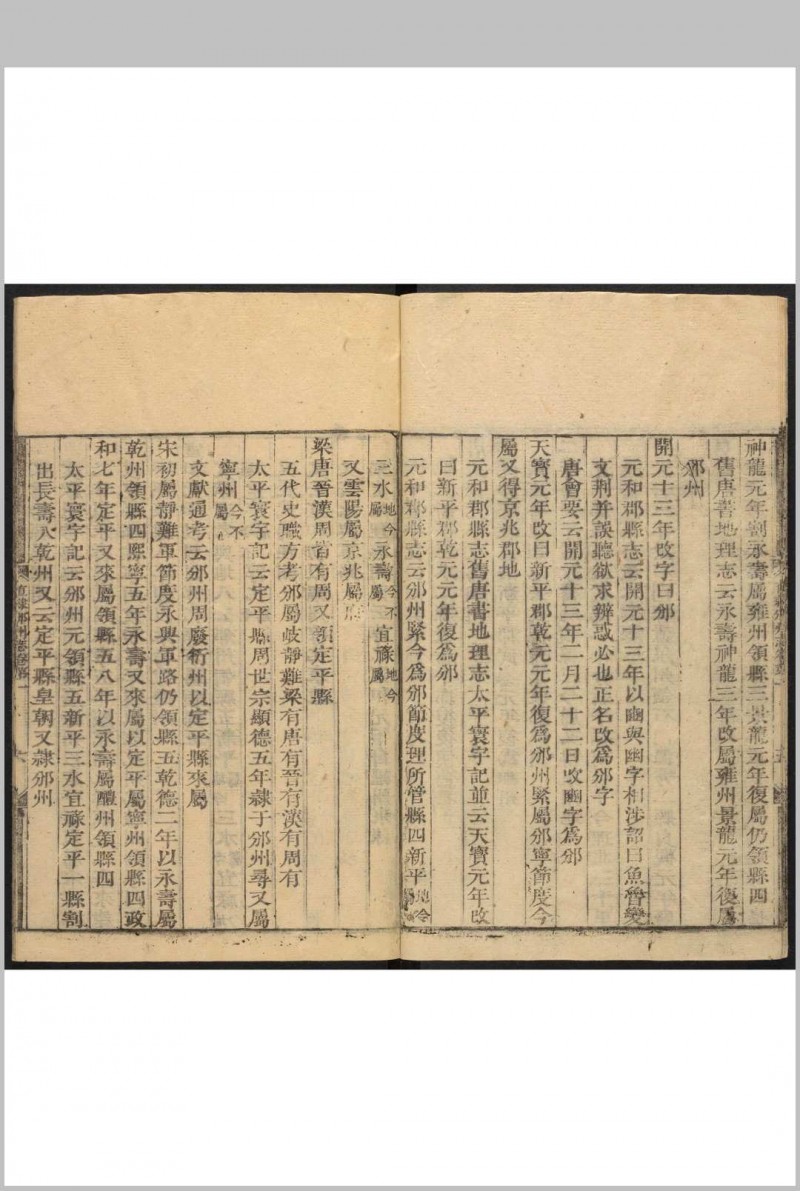 神龍元年割永壽屬雍州領縣三景龍元年復屬仍領縣四
舊唐書地理志云永壽神龍三年改屬雍州景龍元年復屬
邠州
開元十三年改字曰邠
元和郡縣志云開元十三年以豳與幽字相涉詔曰魚魯變
文荆并誤聽欲求辨惑必也正名改為邠字
唐會要云開元十三年二月二十二日改豳字為邠
天寶元年改曰新平郡乾元元年復為邠州緊屬邠寧節度今
屬又得京兆郡地
元和郡縣志舊唐書地理志太平寰宇記並云天寶元年改
曰新平郡乾元元年復為邠
元和郡縣志云邠州緊今為邠節度理所管縣四新平地今屬
三水地今屬永壽今不屬宜祿地今屬
又雲陽屬京兆屬府
梁唐晉漢周皆有周又領定平縣
五代史職方考邠屬岐靜難梁有唐有晉有漢有周有
太平寰宇記云定平縣周世宗顯德五年隸于邠州尋又屬
寧州今不屬
文獻通考云邠州周廢衍州以定平縣來屬
宋初屬靜難軍節度永興軍路仍領縣五乾德二年以永壽屬
乾州領縣四熙寧五年永壽又來屬以定平屬寧州領縣四政
和七年定平又來屬領縣五八年以永壽屬醴州領縣四
太平寰宇記云邠州元領縣五新平三水宜祿定平一縣割
出長壽入乾州又云定平縣皇朝又隸邠州